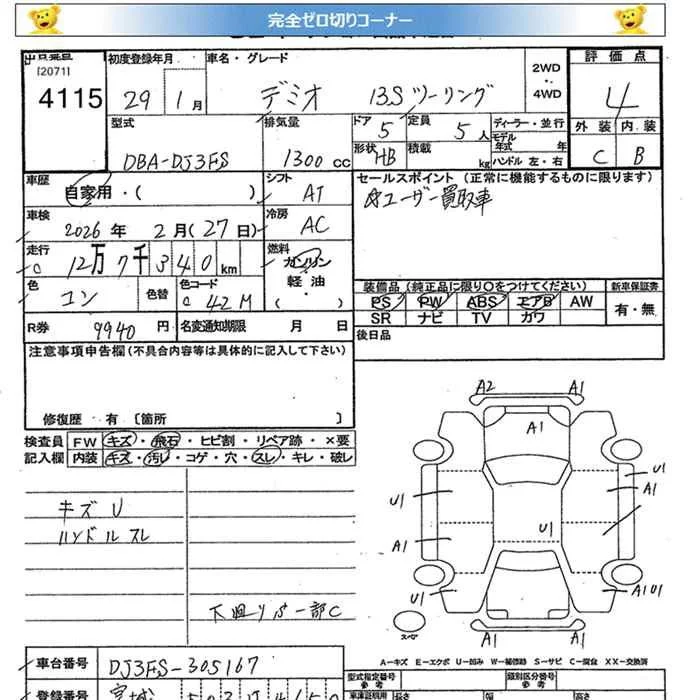 完全ゼロ切りコーナー
出品番号
[2071]
4115
初度登録年月
29年 1月
車名・グレード
デミオ 13S ツーリング
2WD
・
4WD
評価点
4
外装 内装
C B
型式
DBA-DJ3FS
排気量
1300 cc
ドア 5
定員 5人
ディーラー・並行
モデル年式 年
形状 HB
積載 kg
ハンドル 左・右
車歴
自家用・( )
シフト
AT
セールスポイント (正常に機能するものに限ります)
☆ユーザー買取車
車検
2026年 2月(27日)
冷房
AC
走行
C 12万7千340km
燃料
ガソリン
軽油
・( )
色
コン
色替
色コード
C 42M
装備品(純正品に限り○をつけてください)
新車保証書
PS PW ABS エアB AW
SR ナビ TV カワ
有・無
R券
9940円
名変通知期限 月 日
後日品
注意事項申告欄(不具合内容等は具体的に記入して下さい)
修復歴 有 〔箇所 〕
検査員
記入欄
FW キズ・飛石・ヒビ割・リペア跡・×要
内装 キズ・汚レ・コゲ・穴・スレ・キレ・破レ
キズ U
ハンドルスレ
下廻りS一部C
A2 A1
A1
U1
A1
U1
U1
A1
A1
U1
A1 U1
A1 A1
スペア
A－キズ E－エクボ U－凹み W－補修跡 S－サビ C－腐食 XX－交換済
車台番号
DJ3FS-305167
型式指定番号
類別区分番号
参考
参考
登録番号
宮城
車庫証明用
長さ
幅
高さ